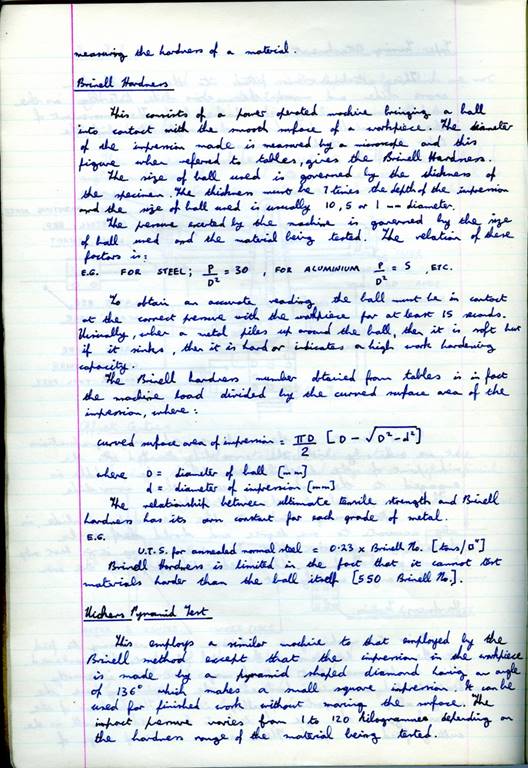 measuring the hardness of a material.
Brinell Hardness
This consists of a power operated machine bringing a ball
into contact with the smooth surface of a workpiece. The diameter
of the impression made is measured by a microscope and this
figure when refered to tables, gives the Brinell Hardness.
The size of ball used is governed by the thickness of
the specimen. The thickness must be 7 times the depth of the impression
and the size of ball used is usually 10, 5 or 1 mm diameter.
The pressure exerted by the machine is governed by the size
of ball used and the material being tested. The relation of these
factors is:
E.G. FOR STEEL; P/D² = 30 , FOR ALUMINIUM P/D² = 5 , ETC.
To obtain an accurate reading, the ball must be in contact
at the correct pressure with the workpiece for at least 15 seconds.
Visually, when a metal piles up around the ball, then it is soft but
if it sinks, then it is hard or indicates a high work hardening
capacity.
The Brinell hardness number obtained from tables is in fact
the machine load divided by the curved surface area of the
impression, where:
curved surface area of impression = πD/2 [D - √D²-d²]
where D = diameter of ball [mm]
d = diameter of impression [mm]
The relationship between ultimate tensile strength and Brinell
hardness has its own constant for each grade of metal.
E.G.
U.T.S. for annealed normal steel = 0.23 x Brinell No. [tons/□"]
Brinell Hardness is limited in the fact that it cannot test
materials harder than the ball itself [550 Brinell No.].
Vickers Pyramid Test
This employs a similar machine to that employed by the
Brinell method except that the impression in the workpiece
is made by a pyramid shaped diamond having an angle
of 136° which makes a small square impression. It can be
used for finished work without marring the surface. The
impact pressure varies from 1 to 120 kilogrammes depending on
the hardness range of the material being tested.